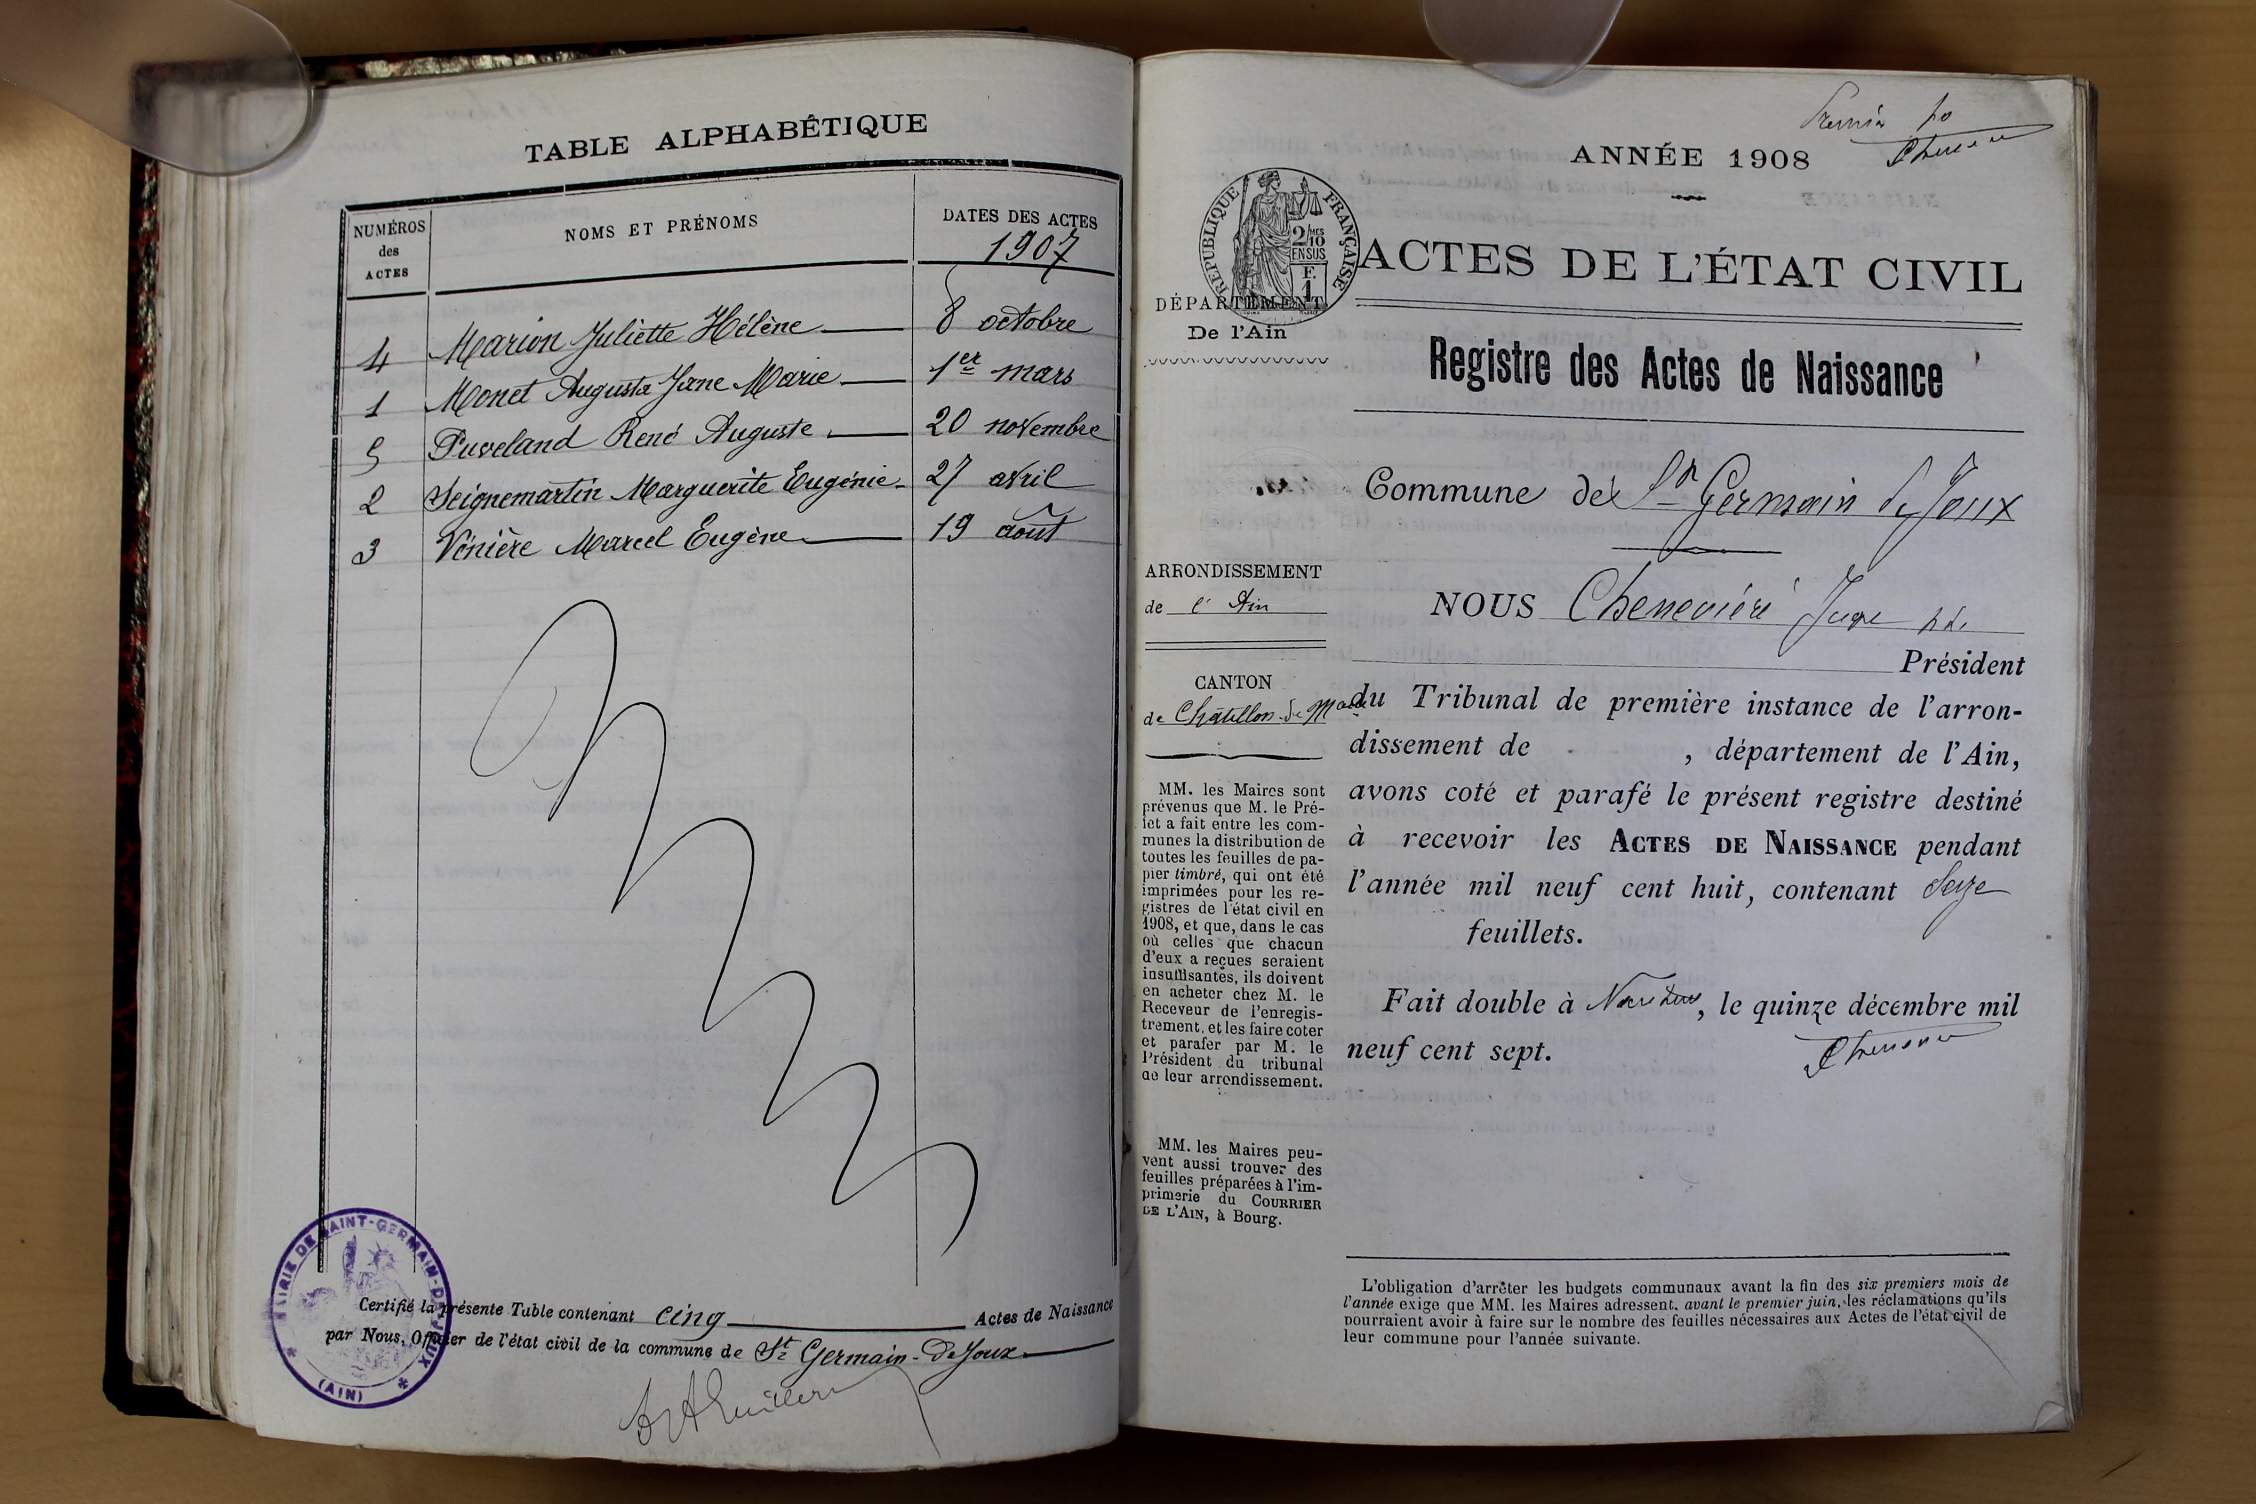 TABLE ALPHABÉTIQUE
NUMÉROS des ACTES
NOMS ET PRÉNOMS
DATES DES ACTES
1907
4 Marion Juliette Hélène 8 octobre
1 Monet Augusta Jane Marie 1er mars
5 Puveland René Auguste 20 novembre
2 Seignemartin Marguerite Eugénie 27 avril
3 Vénière Marcel Eugène 19 août
Certifié la présente Table contenant cinq Actes de Naissance
par Nous, Officier de l'état civil de la commune de St Germain-de-Joux
MAIRIE DE SAINT-GERMAIN-DE-JOUX
(AIN)
Premier
ANNÉE 1908
RÉPUBLIQUE FRANÇAISE
2/10
EN SUS
ACTES DE L'ÉTAT CIVIL
DÉPARTEMENT
De l'Ain
Registre des Actes de Naissance
Commune de St Germain de Joux
ARRONDISSEMENT
de l'Ain
NOUS Chenevière Juge
Président
CANTON
de Châtillon-de-M
du Tribunal de première instance de l'arron-
dissement de , département de l'Ain,
avons coté et parafé le présent registre destiné
à recevoir les ACTES DE NAISSANCE pendant
l'année mil neuf cent huit, contenant Seize
feuillets.
Fait double à , le quinze décembre mil
neuf cent sept.
MM. les Maires sont
prévenus que M. le Pré-
fet a fait entre les com-
munes la distribution de
toutes les feuilles de pa-
pier timbré, qui ont été
imprimées pour les re-
gistres de l'état civil en
1908, et que, dans le cas
où celles que chacun
d'eux a reçues seraient
insuffisantes, ils doivent
en acheter chez M. le
Receveur de l'enregis-
trement, et les faire coter
et parafer par M. le
Président du tribunal
de leur arrondissement.
MM. les Maires peu-
vent aussi trouver des
feuilles préparées à l'im-
primerie du COURRIER
DE L'AIN, à Bourg.
L'obligation d'arrêter les budgets communaux avant la fin des six premiers mois de
l'année exige que MM. les Maires adressent, avant le premier juin, les réclamations qu'ils
pourraient avoir à faire sur le nombre des feuilles nécessaires aux Actes de l'état civil de
leur commune pour l'année suivante.